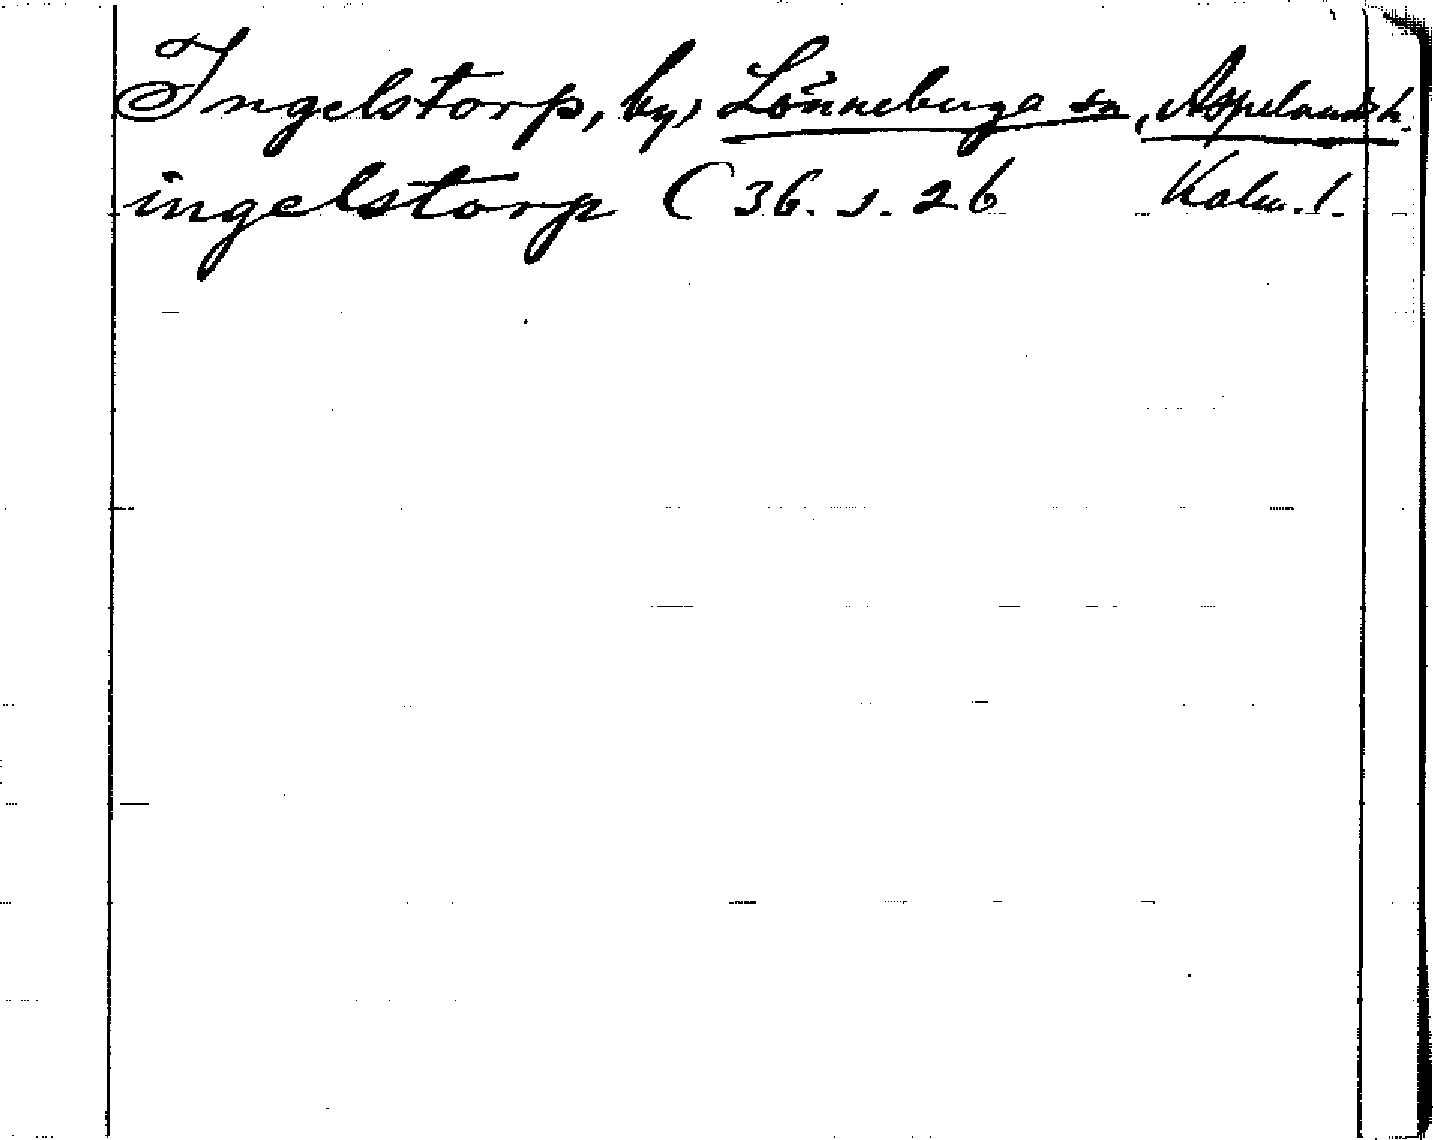 Ingelstorp, by, Lönneberga sn, Aspelands h.
ingelstorp (36. s. 26 Kalm. l.